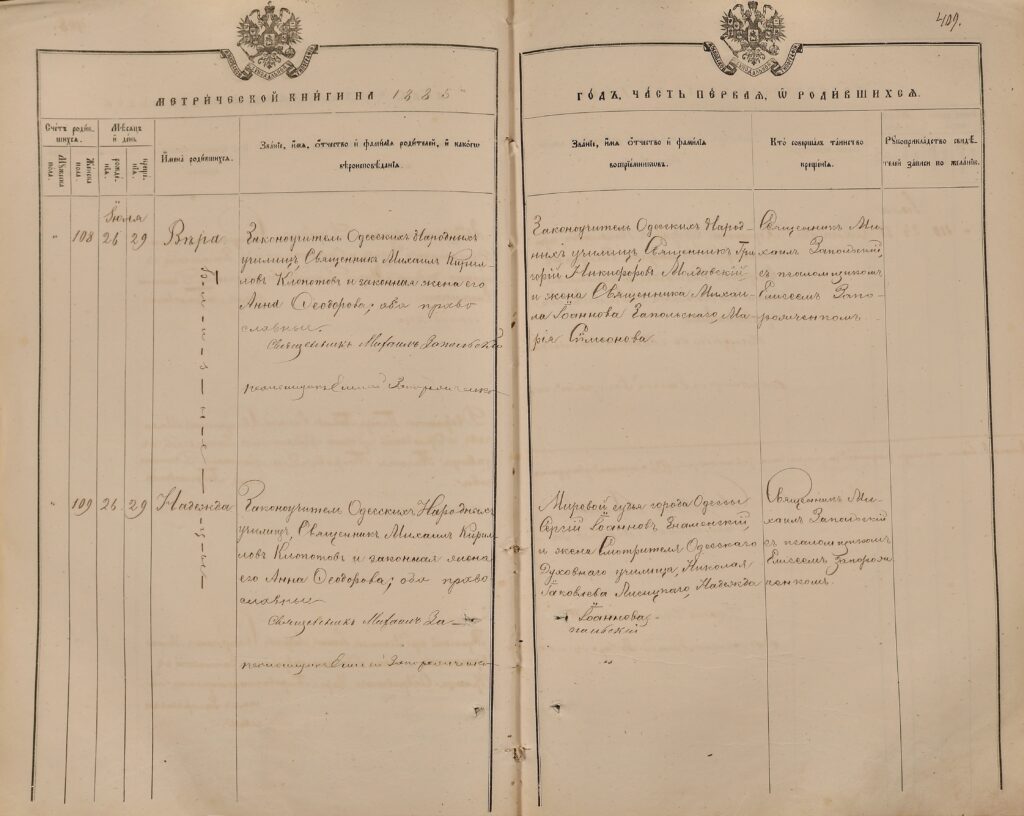 409.
МЕТРИЧЕСКОЙ КНИГИ НА 1885
ГОДЪ, ЧАСТЬ ПЕРВАЯ, Ѿ РОДИВШИХСЯ.
Счетъ родив-
шихся.
Мѣсяцъ
и день.
Мужска
пола.
Женска
пола.
рожде-
нія.
креще-
нія.
Имена родившихся.
Званіе, имя, отчество и фамилія родителей, и какого
вѣроисповѣданія.
Званіе, имя отчество и фамилія
воспріемниковъ.
Кто совершалъ таинство
крещенія.
Рукоприкладство свидѣ-
телей записи по желанію.
Іюля
" 108 26 29 Вѣра
Законоучитель Одесскихъ Народныхъ
училищъ, Священникъ Михаилъ Кирил-
ловъ Клопотовъ и законная жена его
Анна Ѳеодорова; оба право
славные.
Священникъ Михаилъ Запольскій
псаломщикъ Елисей Запорожченко
Законоучитель Одесскихъ Народ-
ныхъ училищъ, Священникъ Гри-
горій Никифоровъ Молдавскій,
и жена Священника Михаи-
ла Іоаннова Запольскаго, Ма-
рія Сѵмеонова.
Священникъ Ми-
хаилъ Запольскій
съ псаломщикомъ
Елисеемъ Запо-
рожченкомъ.
Близнецы
" 109 26 29 Надежда
Законоучитель Одесскихъ Народныхъ
училищъ, Священникъ Михаилъ Кирил-
ловъ Клопотовъ и законная жена
его Анна Ѳеодорова; оба право
славные
Священникъ Михаилъ За-
псаломщикъ Елисей Запорожченко
Мировой судья города Одессы
Сергій Іоанновъ Знаменскій,
и жена Смотрителя Одесскаго
Духовнаго училища, Николая
Іаковлева Лисицкаго, Надежда
Іоаннова
польскій
Священникъ Ми-
хаилъ Запольскій
съ псаломщикомъ
Елисеемъ Запорож
ченкомъ.